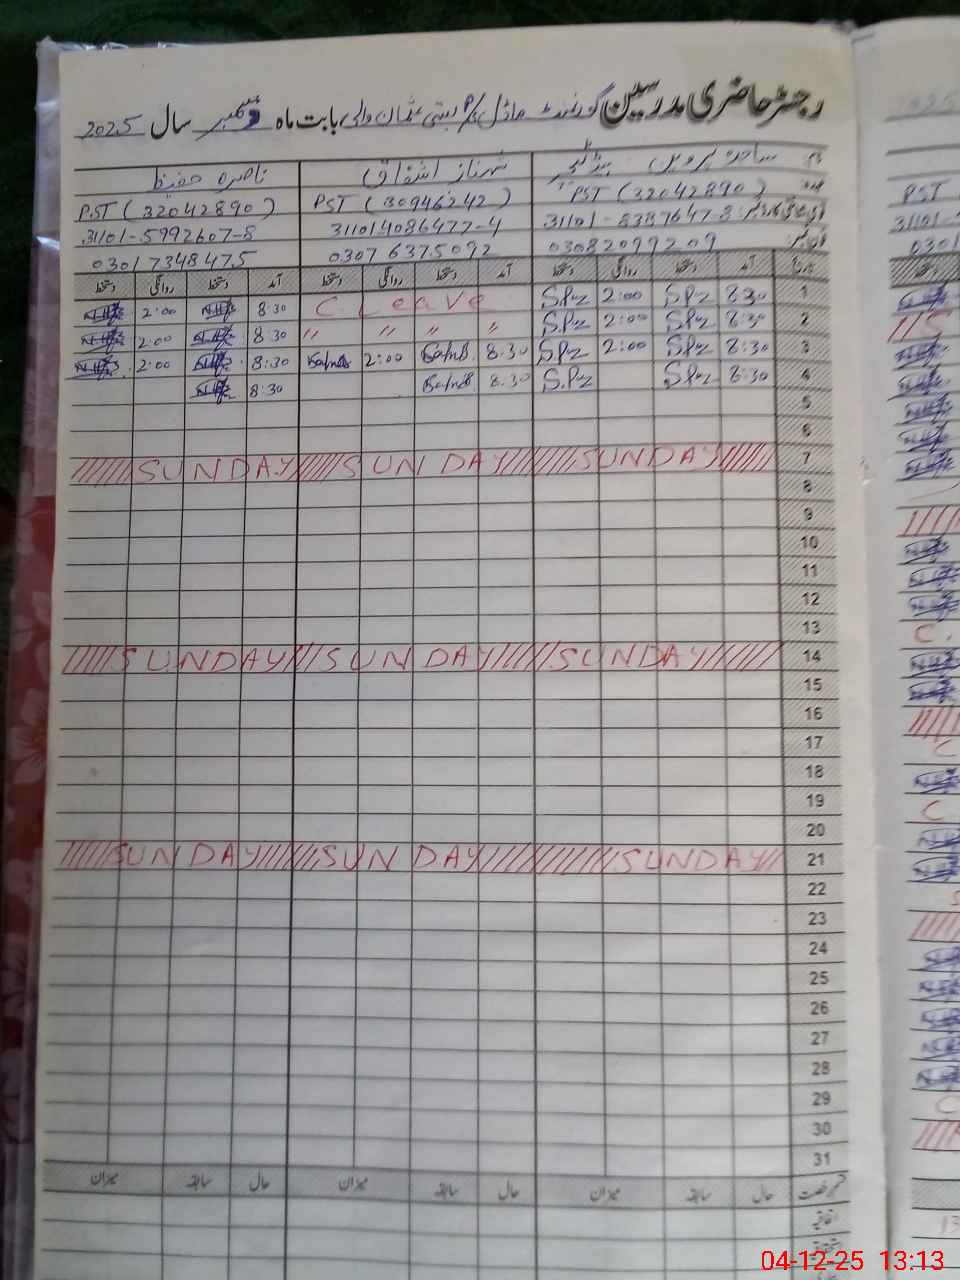 رجسٹر حاضری مدرسین گورنمنٹ ماڈل P/S بستی عثمان والی بابت ماہ دسمبر سال 2025
نام ساجدہ پروین ہیڈ ٹیچر شہناز اشفاق ناصرہ حفیظ
عہدہ PST (32042890) PST (30946242) PST (32042890)
شناختی کارڈ نمبر 31101-8387647-8 31101 4086477-4 31101-5992607-8
فون نمبر 03082099209 0307 6375092 0301 7348475
تاریخ آمد دستخط روانگی دستخط آمد دستخط روانگی دستخط آمد دستخط روانگی دستخط
1 8:30 2:00 C Leave 8:30 2:00
2 8:30 2:00 " " " " 8:30 2:00
3 8:30 2:00 8:30 2:00 8:30 2:00
4 8:30 8:30 8:30
5
6
7 SUNDAY SUNDAY SUNDAY
8
9
10
11
12
13
14 SUNDAY SUNDAY SUNDAY
15
16
17
18
19
20
21 SUNDAY SUNDAY SUNDAY
22
23
24
25
26
27
28
29
30
31
قسم رخصت حال سابقہ میزان حال سابقہ میزان حال سابقہ میزان
اتفاقیہ
استحقاقیہ
04-12-25 13:13